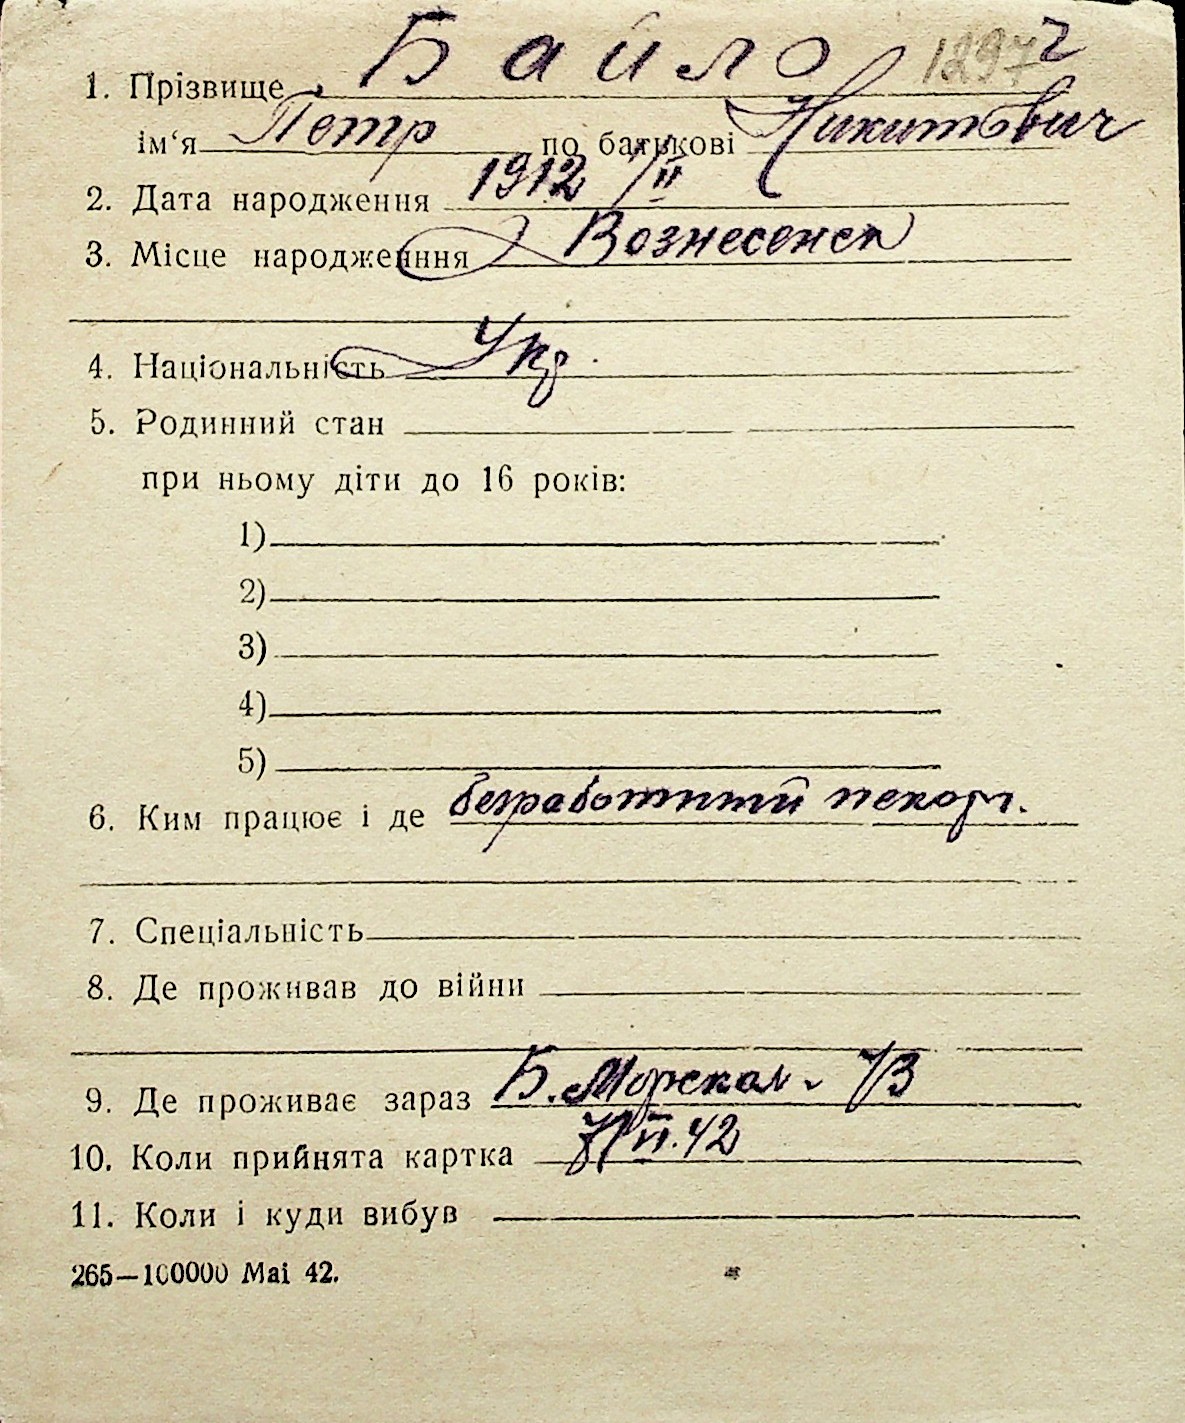 1. Прізвище Байло 1297 2
ім‘я Петр по батькові Никитович
2. Дата народження 1912 /II
3. Місце народженння Вознесенск
4. Національність Укр.
5. Родинний стан
при ньому діти до 16 років:
1)
2)
3)
4)
5)
6. Ким працює і де безработный пекарь.
7. Спеціальність
8. Де проживав до війни
9. Де проживає зараз Б. Морская
10. Коли прийнята картка VI.42
11. Коли і куди вибув
265—100000 Mai 42.